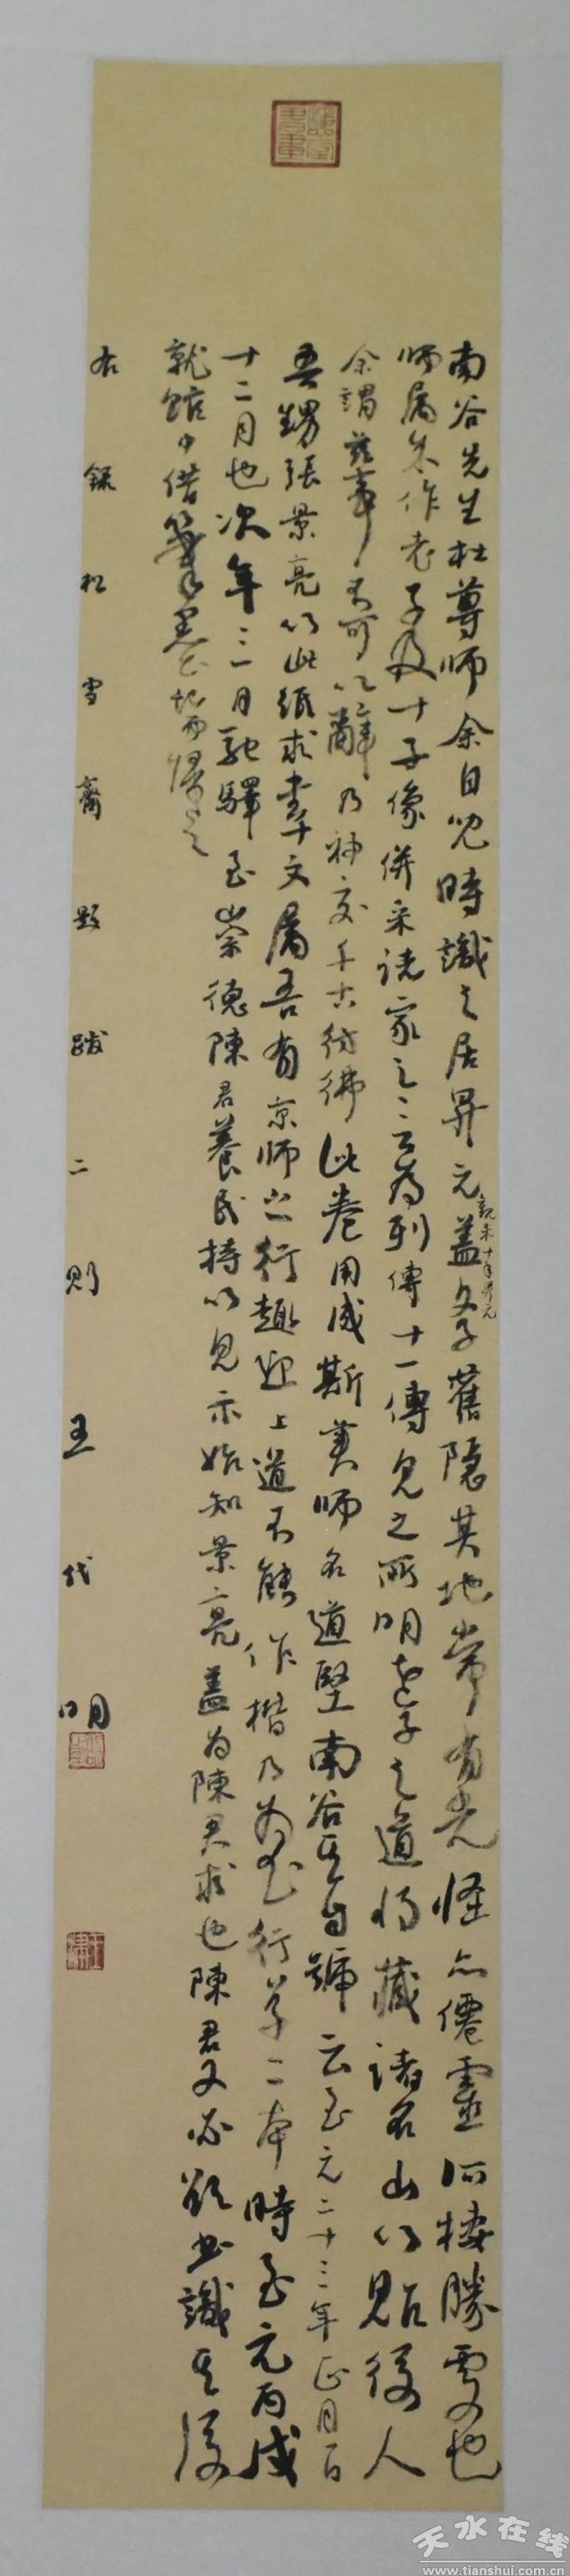 南谷先生杜尊師余自兒時識之居昇元蓋文子舊隱其地常有光怪亦僊靈所棲勝處也
師屬余作老子及十子像併采諸家之言為列傳十一傳見之所明老子之道將藏諸名山以貽後人
余謂茲事不可以辭乃神交千古彷彿此卷用成斯美師名道堅南谷其自號云至元二十三年正月
吾甥張景亮以此紙求書千文屬吾有京師之行趣迎上道不能作楷乃為書行草二本時至元丙戌
十二月也次年三月馳驛至崇德陳君養民持以見示始知景亮蓋為陳君求也陳君又必欲書識其後
就館中借筆墨書而歸之
右錄松雪齋題跋二則王代明
天水在线
www.tianshui.com.cn